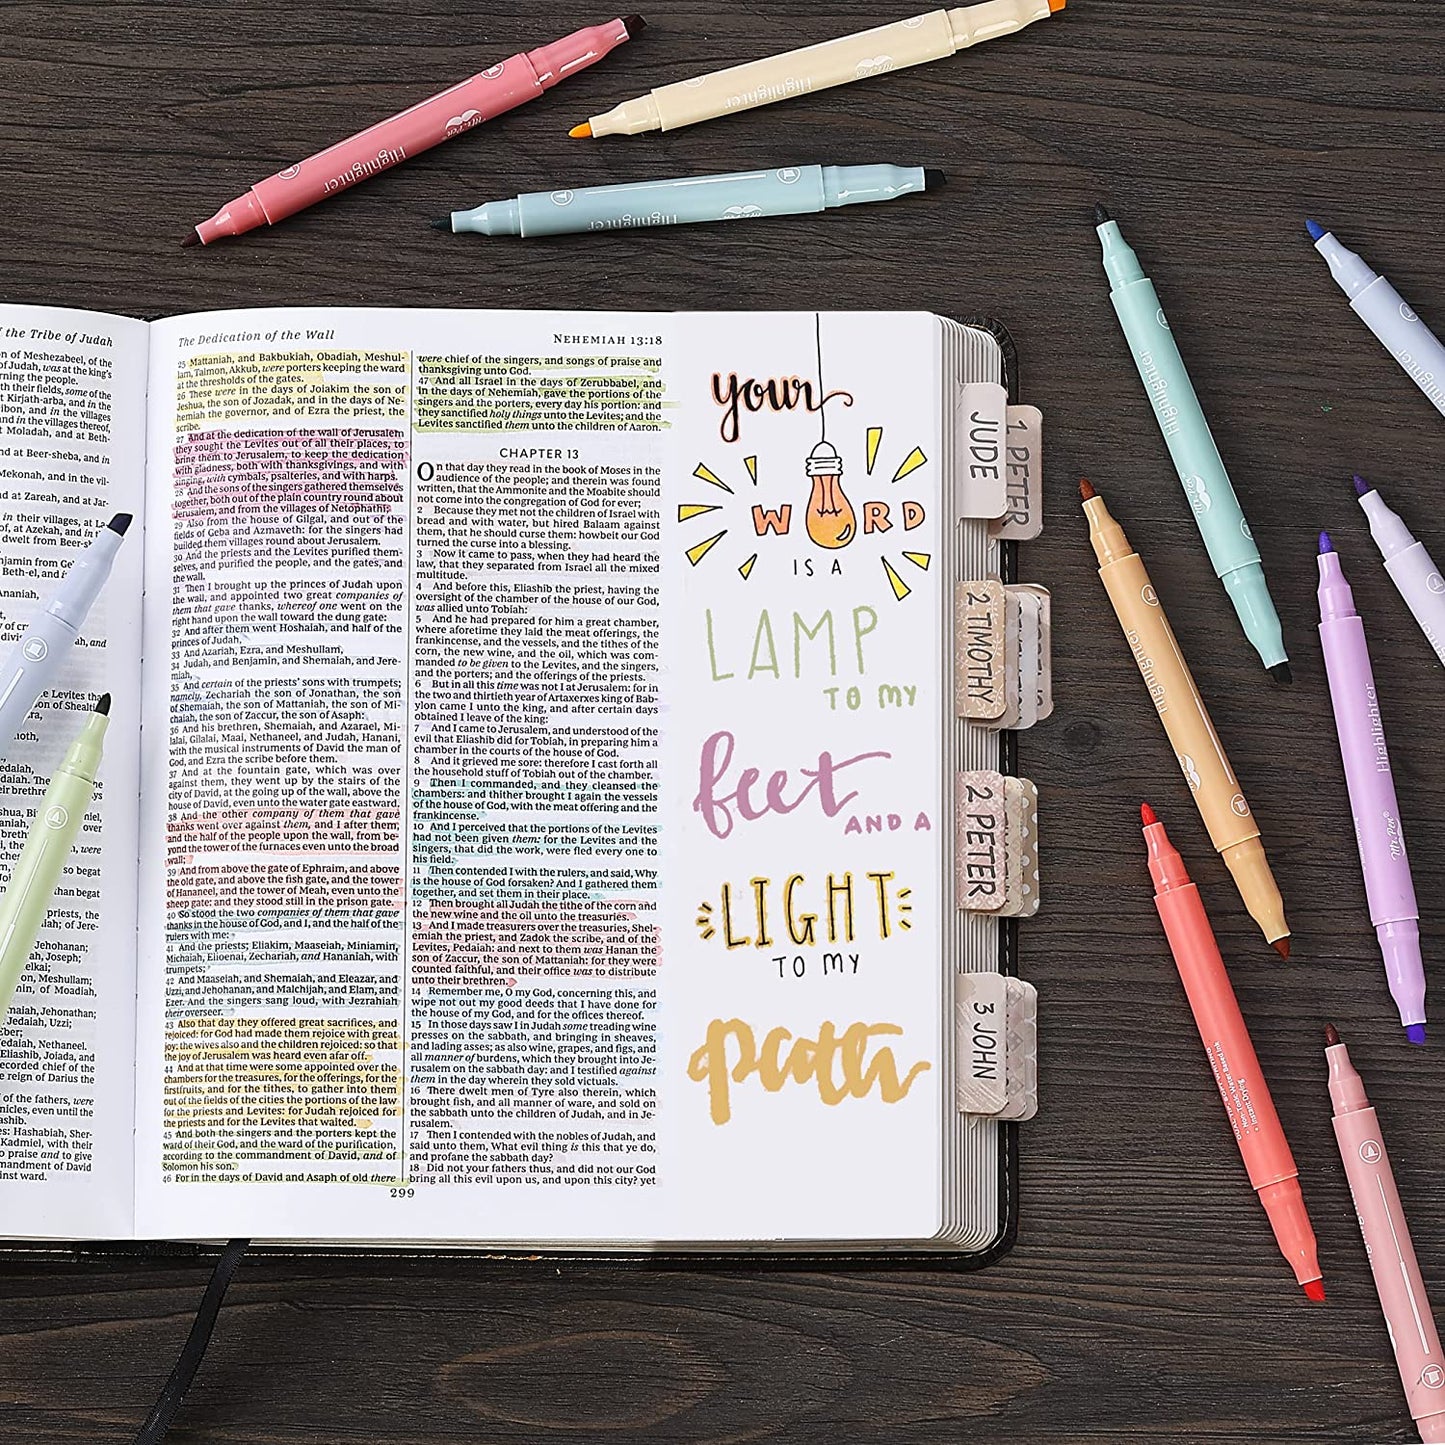 f the Tribe of Judah
The Dedication of the Wall
NEHEMIAH 13:18
25 Mattaniah, and Bakbukiah, Obadiah, Meshul-
lam, Talmon, Akkub, were porters keeping the ward
at the thresholds of the gates.
26 These were in the days of Joiakim the son of
Jeshua, the son of Jozadak, and in the days of Ne-
hemiah the governor, and of Ezra the priest, the
scribe.
27 And at the dedication of the wall of Jerusalem
they sought the Levites out of all their places, to
bring them to Jerusalem, to keep the dedication
with gladness, both with thanksgivings, and with
singing, with cymbals, psalteries, and with harps.
28 And the sons of the singers gathered themselves
together, both out of the plain country round about
Jerusalem, and from the villages of Netophathi;
29 Also from the house of Gilgal, and out of the
fields of Geba and Azmaveth: for the singers had
builded them villages round about Jerusalem.
30 And the priests and the Levites purified them-
selves, and purified the people, and the gates, and
the wall.
31 Then I brought up the princes of Judah upon
the wall, and appointed two great companies of
them that gave thanks, whereof one went on the
right hand upon the wall toward the dung gate:
32 And after them went Hoshaiah, and half of the
princes of Judah,
33 And Azariah, Ezra, and Meshullam,
34 Judah, and Benjamin, and Shemaiah, and Jere-
miah,
35 And certain of the priests' sons with trumpets;
namely, Zechariah the son of Jonathan, the son
of Shemaiah, the son of Mattaniah, the son of Mi-
chaiah, the son of Zaccur, the son of Asaph:
36 And his brethren, Shemaiah, and Azarael, Mi-
lalai, Gilalai, Maai, Nethaneel, and Judah, Hanani,
with the musical instruments of David the man of
God, and Ezra the scribe before them.
37 And at the fountain gate, which was over
against them, they went up by the stairs of the
city of David, at the going up of the wall, above the
house of David, even unto the water gate eastward.
38 And the other company of them that gave
thanks went over against them, and I after them,
and the half of the people upon the wall, from be-
yond the tower of the furnaces even unto the broad
wall;
39 And from above the gate of Ephraim, and above
the old gate, and above the fish gate, and the tower
of Hananeel, and the tower of Meah, even unto the
sheep gate: and they stood still in the prison gate.
40 So stood the two companies of them that gave
thanks in the house of God, and I, and the half of the
rulers with me:
41 And the priests; Eliakim, Maaseiah, Miniamin,
Michaiah, Elioenai, Zechariah, and Hananiah, with
trumpets;
42 And Maaseiah, and Shemaiah, and Eleazar, and
Uzzi, and Jehohanan, and Malchijah, and Elam, and
Ezer. And the singers sang loud, with Jezrahiah
their overseer.
43 Also that day they offered great sacrifices, and
rejoiced: for God had made them rejoice with great
joy: the wives also and the children rejoiced: so that
the joy of Jerusalem was heard even afar off.
44 And at that time were some appointed over the
chambers for the treasures, for the offerings, for the
firstfruits, and for the tithes, to gather into them
out of the fields of the cities the portions of the law
for the priests and Levites: for Judah rejoiced for
the priests and for the Levites that waited.
45 And both the singers and the porters kept the
ward of their God, and the ward of the purification,
according to the commandment of David, and of
Solomon his son.
46 For in the days of David and Asaph of old there
were chief of the singers, and songs of praise and
thanksgiving unto God.
47 And all Israel in the days of Zerubbabel, and
in the days of Nehemiah, gave the portions of the
singers and the porters, every day his portion: and
they sanctified holy things unto the Levites; and the
Levites sanctified them unto the children of Aaron.
CHAPTER 13
On that day they read in the book of Moses in the
audience of the people; and therein was found
written, that the Ammonite and the Moabite should
not come into the congregation of God for ever;
2 Because they met not the children of Israel with
bread and with water, but hired Balaam against
them, that he should curse them: howbeit our God
turned the curse into a blessing.
3 Now it came to pass, when they had heard the
law, that they separated from Israel all the mixed
multitude.
4 And before this, Eliashib the priest, having the
oversight of the chamber of the house of our God,
was allied unto Tobiah:
5 And he had prepared for him a great chamber,
where aforetime they laid the meat offerings, the
frankincense, and the vessels, and the tithes of the
corn, the new wine, and the oil, which was com-
manded to be given to the Levites, and the singers,
and the porters; and the offerings of the priests.
6 But in all this time was not I at Jerusalem: for in
the two and thirtieth year of Artaxerxes king of Bab-
ylon came I unto the king, and after certain days
obtained I leave of the king:
7 And I came to Jerusalem, and understood of the
evil that Eliashib did for Tobiah, in preparing him a
chamber in the courts of the house of God.
8 And it grieved me sore: therefore I cast forth all
the household stuff of Tobiah out of the chamber.
9 Then I commanded, and they cleansed the
chambers: and thither brought I again the vessels
of the house of God, with the meat offering and the
frankincense.
10 And I perceived that the portions of the Levites
had not been given them: for the Levites and the
singers, that did the work, were fled every one to
his field.
11 Then contended I with the rulers, and said, Why
is the house of God forsaken? And I gathered them
together, and set them in their place.
12 Then brought all Judah the tithe of the corn and
the new wine and the oil unto the treasuries.
13 And I made treasurers over the treasuries, Shel-
emiah the priest, and Zadok the scribe, and of the
Levites, Pedaiah: and next to them was Hanan the
son of Zaccur, the son of Mattaniah: for they were
counted faithful, and their office was to distribute
unto their brethren.
14 Remember me, O my God, concerning this, and
wipe not out my good deeds that I have done for
the house of my God, and for the offices thereof.
15 In those days saw I in Judah some treading wine
presses on the sabbath, and bringing in sheaves,
and lading asses; as also wine, grapes, and figs, and
all manner of burdens, which they brought into Je-
rusalem on the sabbath day: and I testified against
them in the day wherein they sold victuals.
16 There dwelt men of Tyre also therein, which
brought fish, and all manner of ware, and sold on
the sabbath unto the children of Judah, and in Je-
rusalem.
17 Then I contended with the nobles of Judah, and
said unto them, What evil thing is this that ye do,
and profane the sabbath day?
18 Did not your fathers thus, and did not our God
bring all this evil upon us, and upon this city? yet
299
your
WORD
IS A
LAMP
TO MY
feet
AND A
LIGHT
TO MY
path
JUDE
1 PETER
2 TIMOTHY
2 PETER
3 JOHN
Highlighter
Mr. Pen
Highlighter
Mr. Pen
Highlighter
Highlighter
Highlighter
Highlighter
Highlighter
Mr. Pen
• Instant Drying
• Non-Toxic Water Based Ink